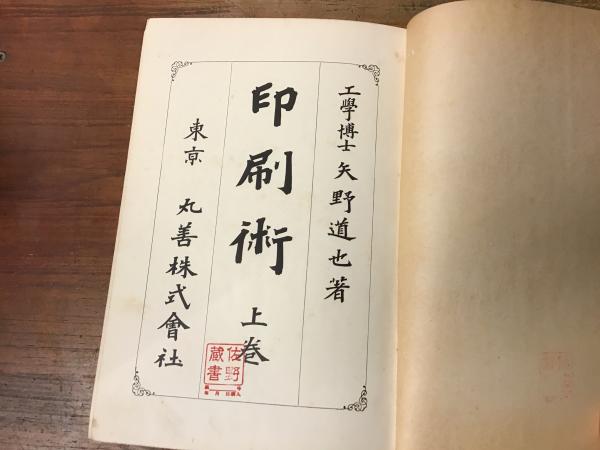 工學博士 矢野道也著
印刷術 上卷
東京 丸善株式會社
佐野
藏書